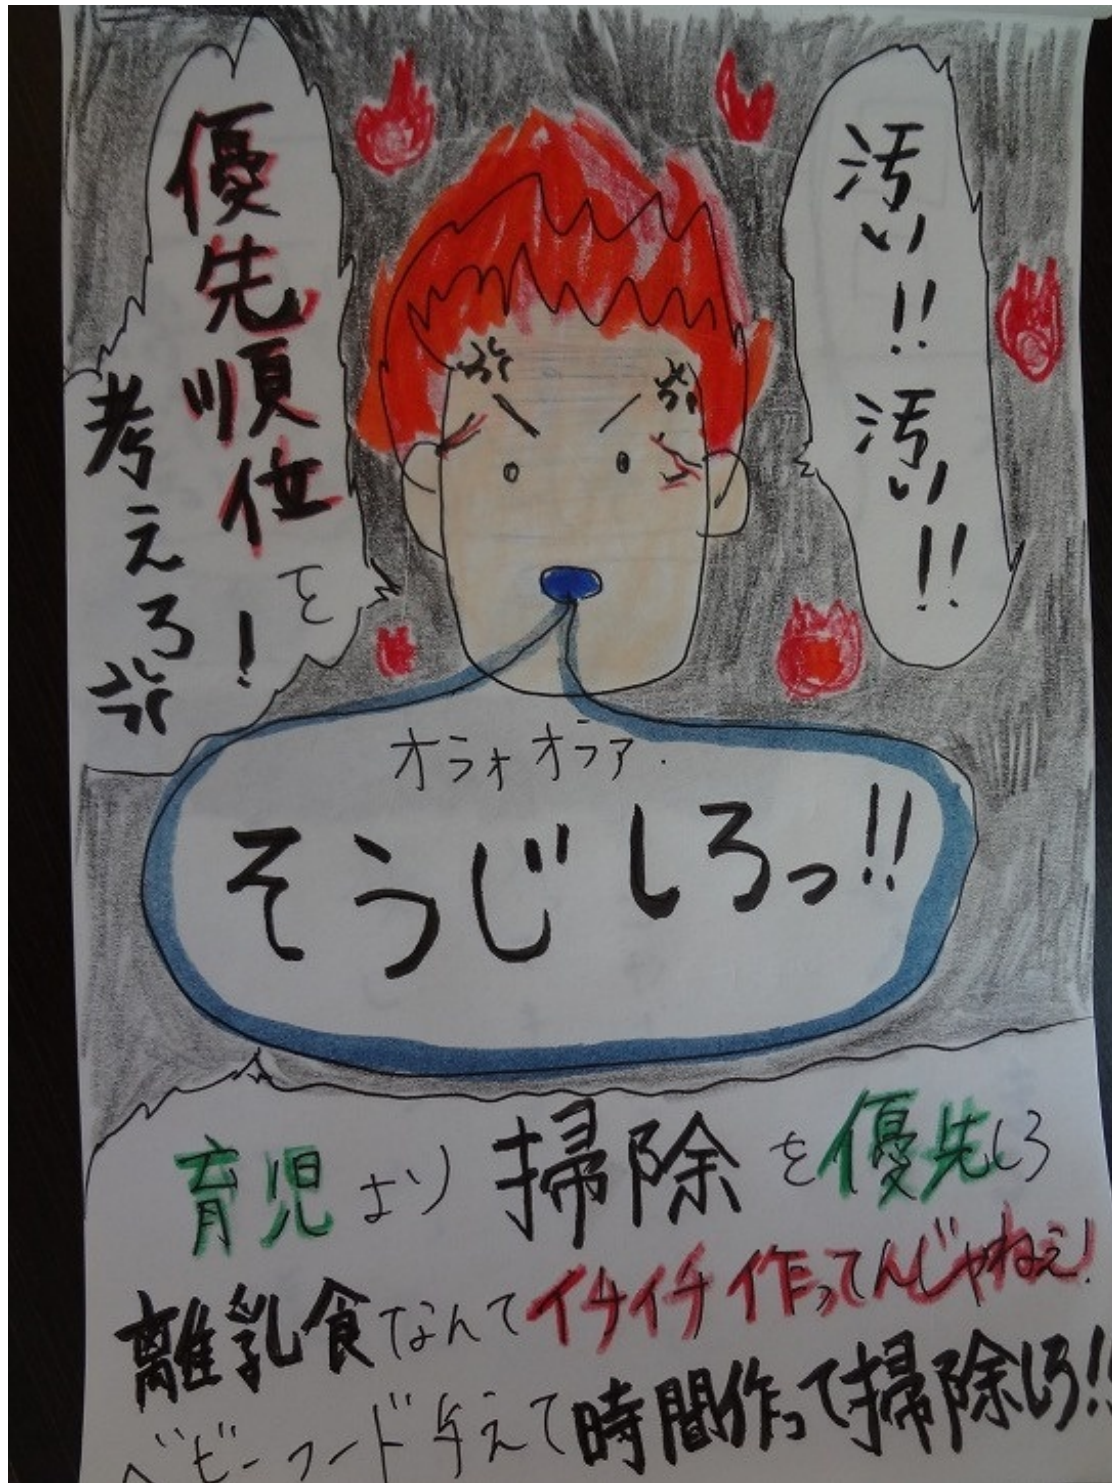 汚い!!
汚い!!
優先順位を
考えろ!
オラォオラァ.
そうじしろっ!!
育児より掃除を優先しろ
離乳食なんてイチイチ作ってんじゃねぇ!
ベビーフード与えて時間作って掃除しろ!!